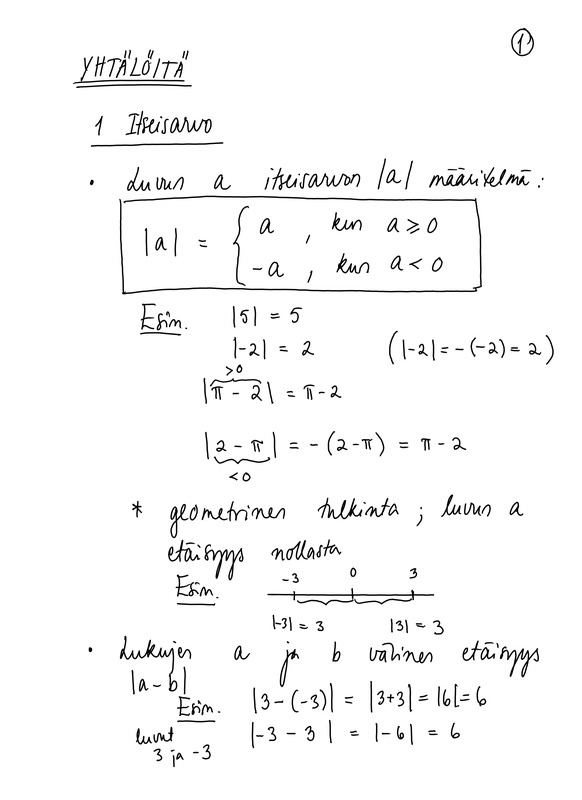 1
YHTÄLÖITÄ
1 Itseisarvo
• Luvun a itseisarvon |a| määritelmä:
|a| = { a , kun a ≥ 0
-a , kun a < 0
Esim. |5| = 5
|-2| = 2 (|-2| = -(-2) = 2)
>0
|π - 2| = π - 2
|2 - π| = -(2-π) = π - 2
<0
* geometrinen tulkinta ; luvun a
etäisyys nollasta
Esim. -3 0 3
|-3| = 3 |3| = 3
• Lukujen a ja b välinen etäisyys
|a-b|
Esim. |3-(-3)| = |3+3| = |6| = 6
luvut |-3 - 3| = |-6| = 6
3 ja -3